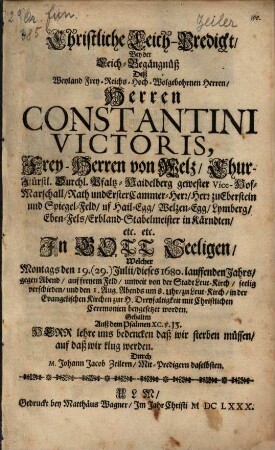 Zeiler
Christliche Leich-Predigt/
Bey der
Leich-Begängnüß
Deß
Weyland Frey-Reichs-Hoch-Wolgebohrnen Herren/
Herren
CONSTANTINI
VICTORIS,
Frey-Herren von Welz/ Chur-
Fürstl. Durchl. Pfaltz-Haidelberg gewester Vice-Hof-
Marschall/ Rath und Erster Cammer-Herr/ Herr zu Eberstein
und Spiegel-Feld/ uf Hail-Egg/ Welzen-Egg/ Lymberg/
Eben-Fels/ Erbland-Stabelmeister in Kärndten/
etc. etc.
In GOTT Seeligen/
Welcher
Montags den 19. (29.) Julii/ dieses 1680. lauffenden Jahrs/
gegen Abend/ auf freyem Feld/ unweit von der Stadt Leut-Kirch/ seelig
verschieden/ und den 1. Aug. Abends um 8. uhr/ zu Leut-Kirch/ in der
Evangelischen Kirchen zur H. Dreyfaltigkeit mit Christlichen
Ceremonien beygesetzt worden.
Gehalten
Auß dem Psalmen XC. v. 13.
HERR lehre uns bedencken daß wir sterben müssen/
auf daß wir klug werden.
Durch
M. Johann Jacob Zeilern/ Mit-Predigern daselbsten.
ULM/
Gedruckt bey Matthäus Wagner/ Im Jahr Christi M DC LXXX.